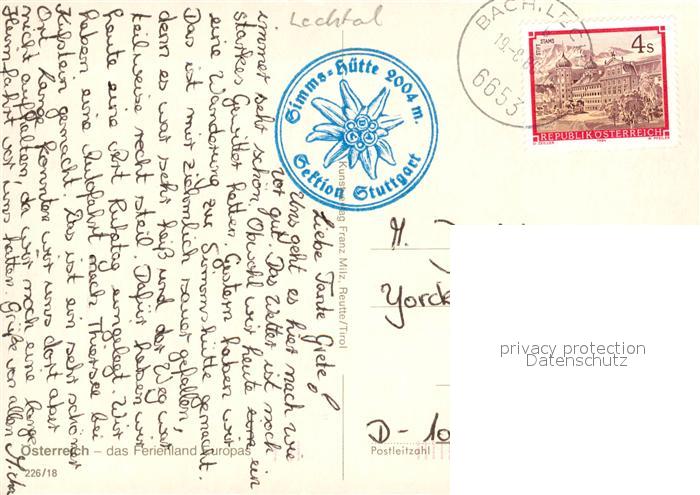 Lechtal
BACH, LEC
6653
4s
STIFT STAMS
REPUBLIK ÖSTERREICH
Simms=Hütte 2004 m.
Sektion Stuttgart
Liebe Tante Grete!
Uns geht es hier nach wie
vor gut. Das Wetter ist noch
immer sehr schön. Obwohl wir heute ein
starkes Gewitter hatten. Gestern haben wir
eine Wanderung zur Simmshütte gemacht.
Das ist mir ziemlich sauer gefallen,
denn es war sehr heiß und der Weg war
teilweise recht steil. Dafür haben wir
heute eine Art Ruhetag eingelegt. Wir
haben eine Autofahrt nach Thiersee bei
Kufstein gemacht. Das ist ein sehr schöner
Ort. Lange konnten wir uns dort aber
nicht aufhalten, da wir noch eine lange
Heimfahrt vor uns hatten. Grüße von allen Micha
Kunstverlag Franz Milz, Reutte/Tirol
Yorck
D-10
Postleitzahl
Österreich – das Ferienland Europas
226/18
privacy protection
Datenschutz